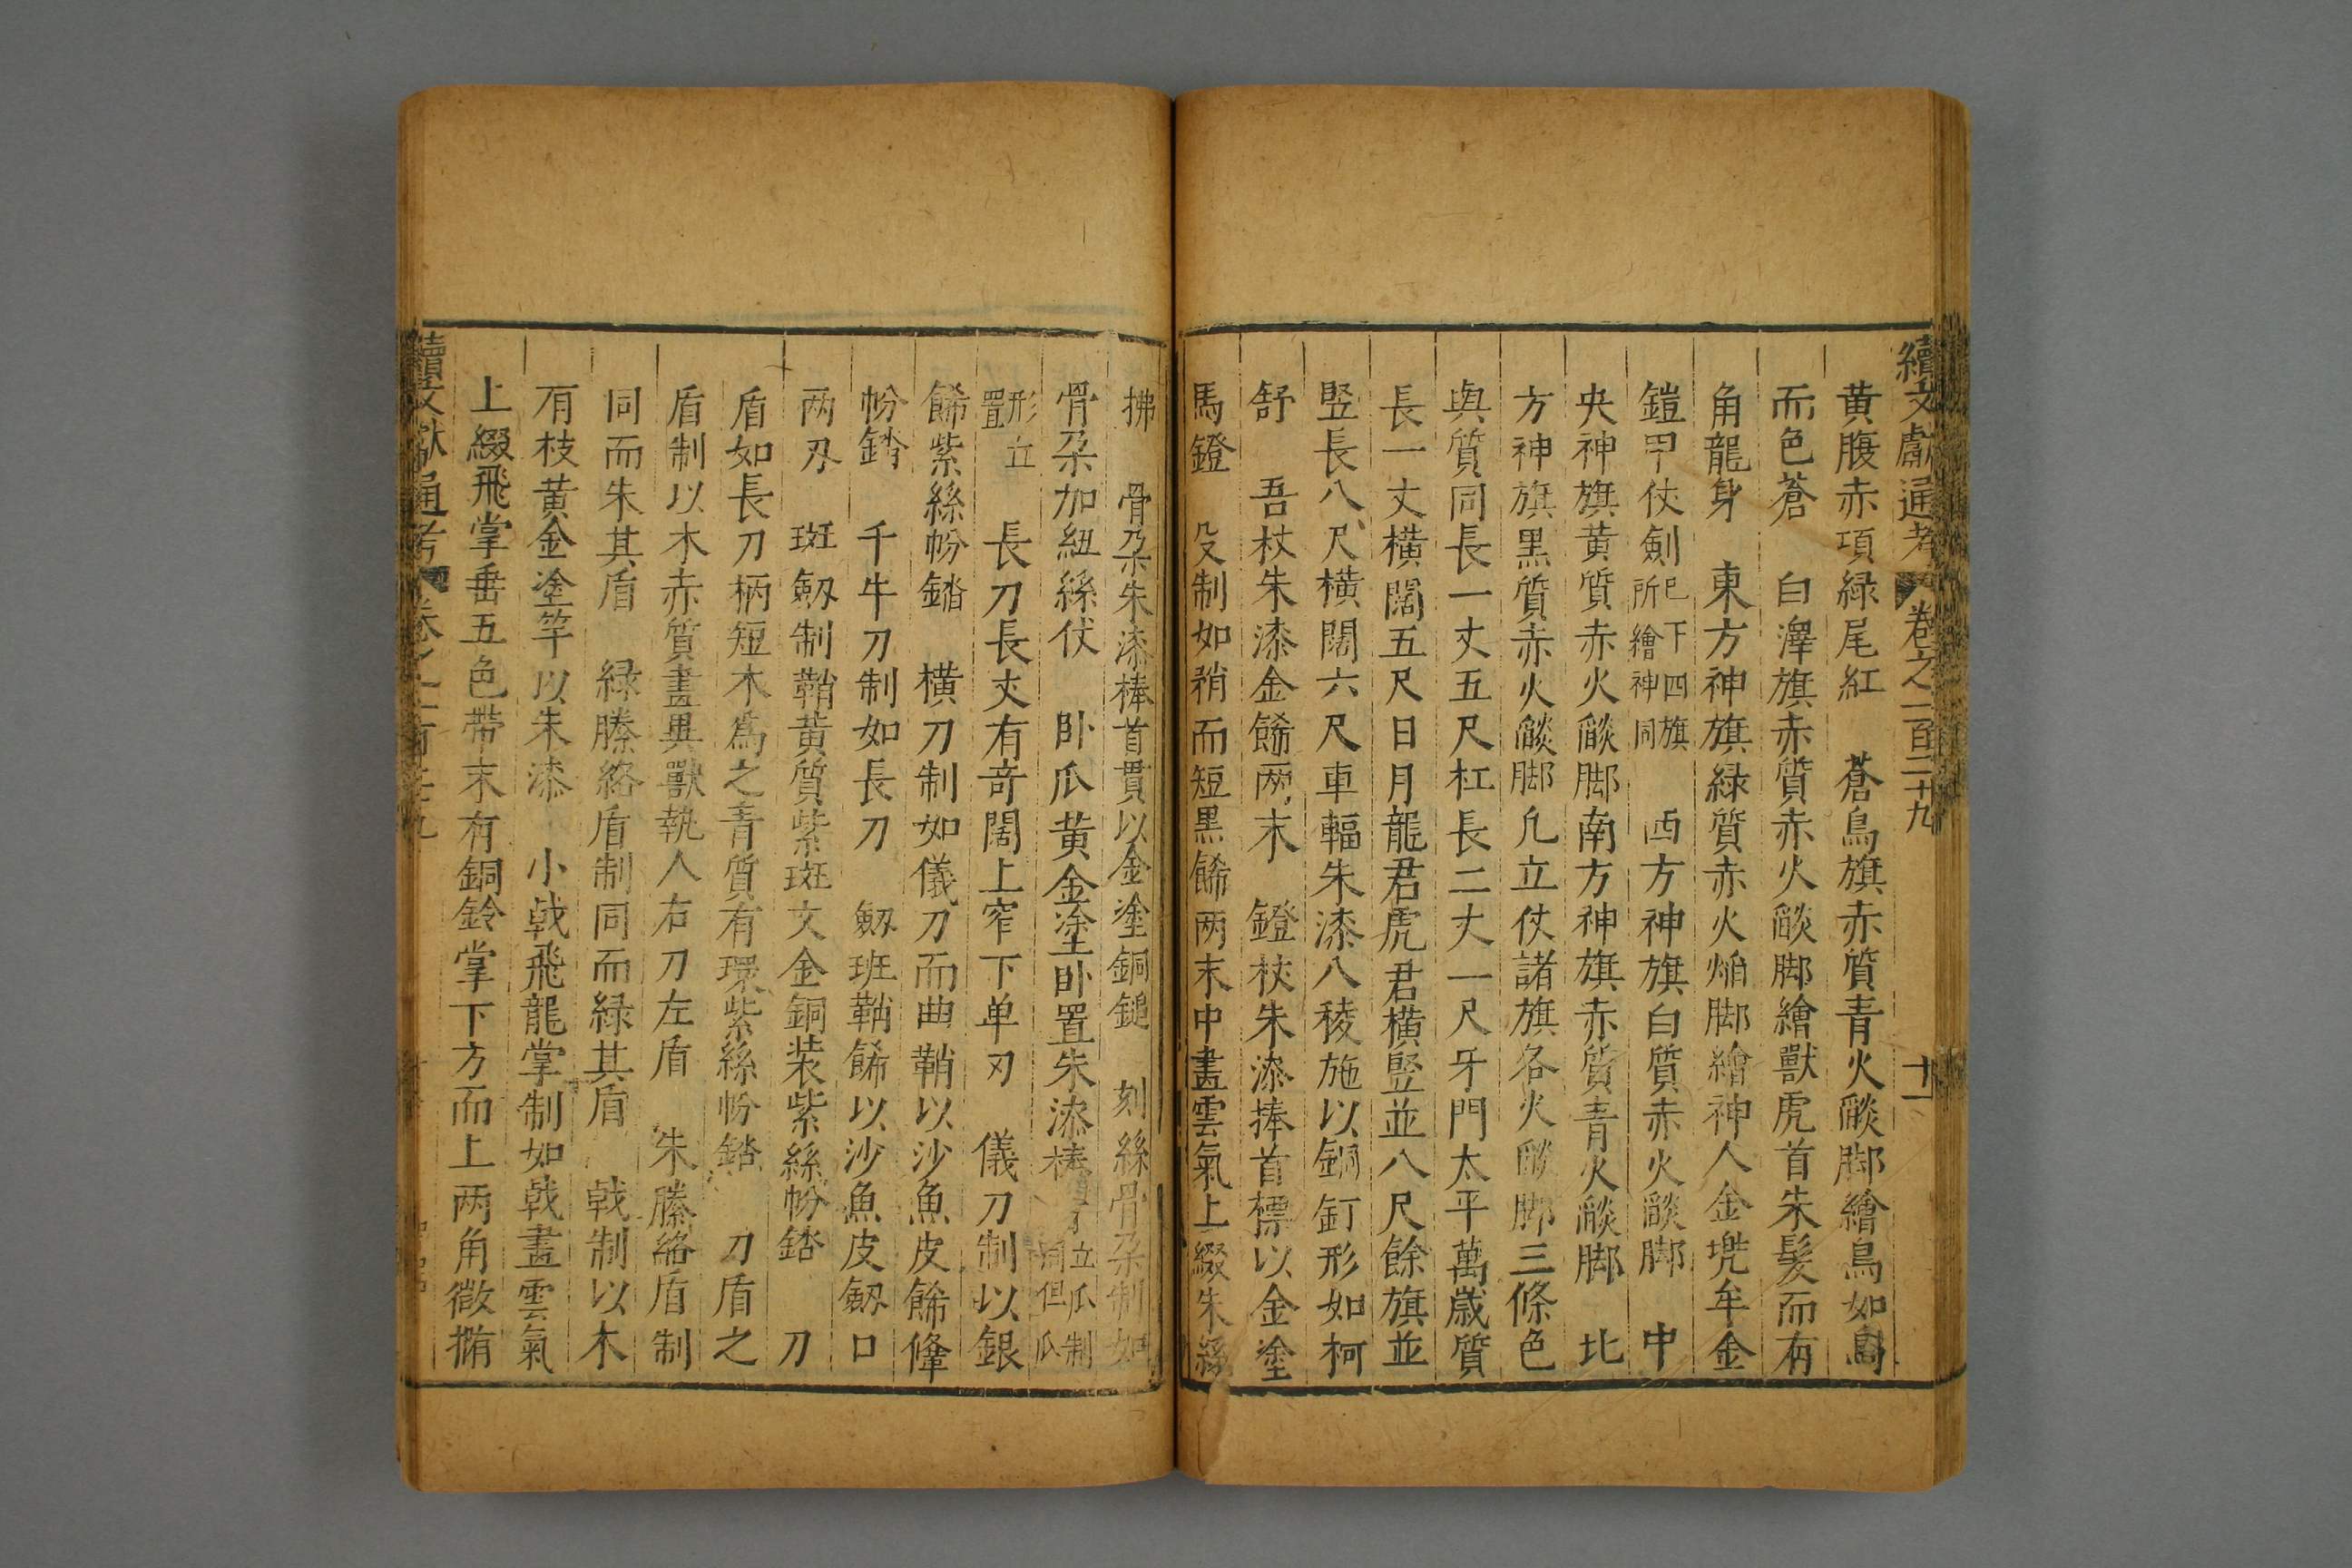 續文獻通考 卷之一百二十九 十一
黄腹赤項緑尾紅 蒼烏旗赤質青火燄脚繪烏如烏
而色蒼 白澤旗赤質赤火燄脚繪獸虎首朱髮而有
角龍身 東方神旗緑質赤火焰脚繪神人金兠牟金
鎧甲仗劍巳下四旗所繪神同 西方神旗白質赤火燄脚 中
央神旗黄質赤火燄脚南方神旗赤質青火燄脚 北
方神旗黑質赤火燄脚凡立仗諸旗各火燄脚三條色
與質同長一丈五尺杠長二丈一尺牙門太平萬歲質
長一丈横闊五尺日月龍君虎君横竪並八尺餘旗並
竪長八尺横闊六尺車輻朱漆八稜施以銅釘形如柯
舒 吾杖朱漆金餙两末 鐙杖朱漆捧首標以金塗
馬鐙 殳制如矟而短黑餙两末中畫雲氣上綴朱絲
拂 骨朶朱漆棒首貫以金塗銅鎚 刻絲骨朶制如
骨朶加紐絲仗 卧瓜黄金塗卧置朱漆棒首立瓜制同但瓜
形立置 長刀長丈有竒闊上窄下单刃 儀刀制以銀
餙紫絲帉錔 横刀制如儀刀而曲鞘以沙魚皮餙㡓
帉錔 千牛刀制如長刀 劔班鞘餙以沙魚皮劔口
两刃 斑劔制鞘黄質紫斑文金銅装紫絲帉錔 刀
盾如長刀柄短木爲之青質有環紫絲帉錔 刀盾之
盾制以木赤質畫異獸執人右刀左盾 朱縢絡盾制
同而朱其盾 緑縢絡盾制同而緑其盾 㦸制以木
有枝黄金塗竿以朱漆 小㦸飛龍掌制如㦸畫雲氣
上綴飛掌垂五色帶末有銅鈴掌下方而上两角微撱
續文獻通考 卷之一百二十九